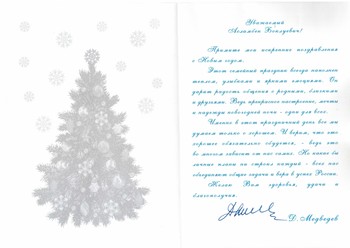 Уважаемый
Асламбек Баклуевич!
Примите мои искренние поздравления
с Новым годом.
Этот семейный праздник всегда наполнен
теплом, улыбками и яркими эмоциями. Он
дарит радость общения с родными, близкими
и друзьями. Ведь прекрасное настроение, мечты
и надежды новогодней ночи - одни для всех.
Именно в этот праздничный день все мы
думаем только о хорошем. И верим, что это
хорошее обязательно сбудется, - ведь это
во многом зависит от нас самих. Но какие бы
личные планы мы строили - всех нас
объединяют общие задачи и вера в успех России.
Желаю Вам здоровья, удачи и
благополучия.
Д. Медведев